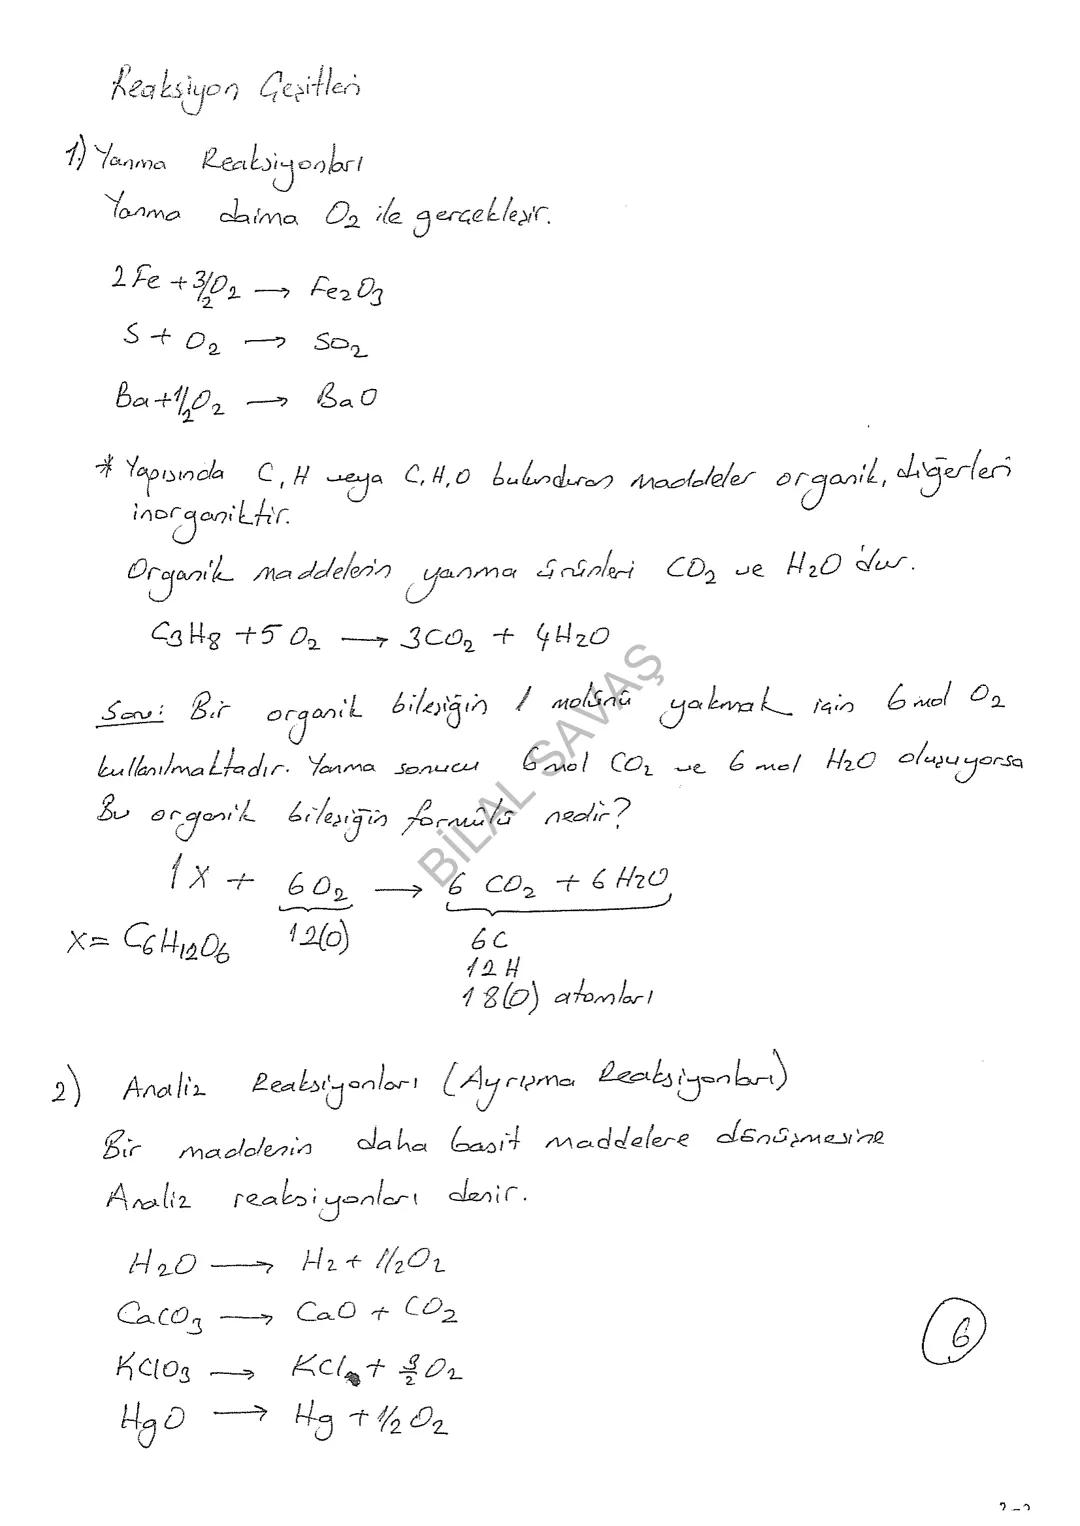 Reaksiyon Çeşitleri
1) Yanma Reaksiyonları
Yanma daima O2 ile gerçekleşir.
2Fe + 3/2O2 → Fe2O3
S + O2 → SO2
Ba + 1/2O2 → BaO
* Yapısında C, H veya C, H, O bulunduran maddeler organik, diğerleri
inorganiktir.
Organik maddelerin yanma ürünleri CO2 ve H2O'dur.
C3H8 + 5O2 → 3CO2 + 4H2O
Soru: Bir organik bileşiğin 1 molünü yakmak için 6 mol O2
kullanılmaktadır. Yanma sonucu 6 mol CO2 ve 6 mol H2O oluşuyorsa
Bu organik bileşiğin formülü nedir?
1X + 6O2 → 6 CO2 + 6H2O
X = C6H12O6 12(O) 6C
12H
18(O) atomları
BİLAL SAVAŞ
2) Analiz Reaksiyonları (Ayrışma Reaksiyonları)
Bir maddenin daha basit maddelere dönüşmesine
Analiz reaksiyonları denir.
H2O → H2 + 1/2O2
CaCO3 → CaO + CO2
KClO3 → KCl + 3/2 O2
HgO → Hg + 1/2 O2
6